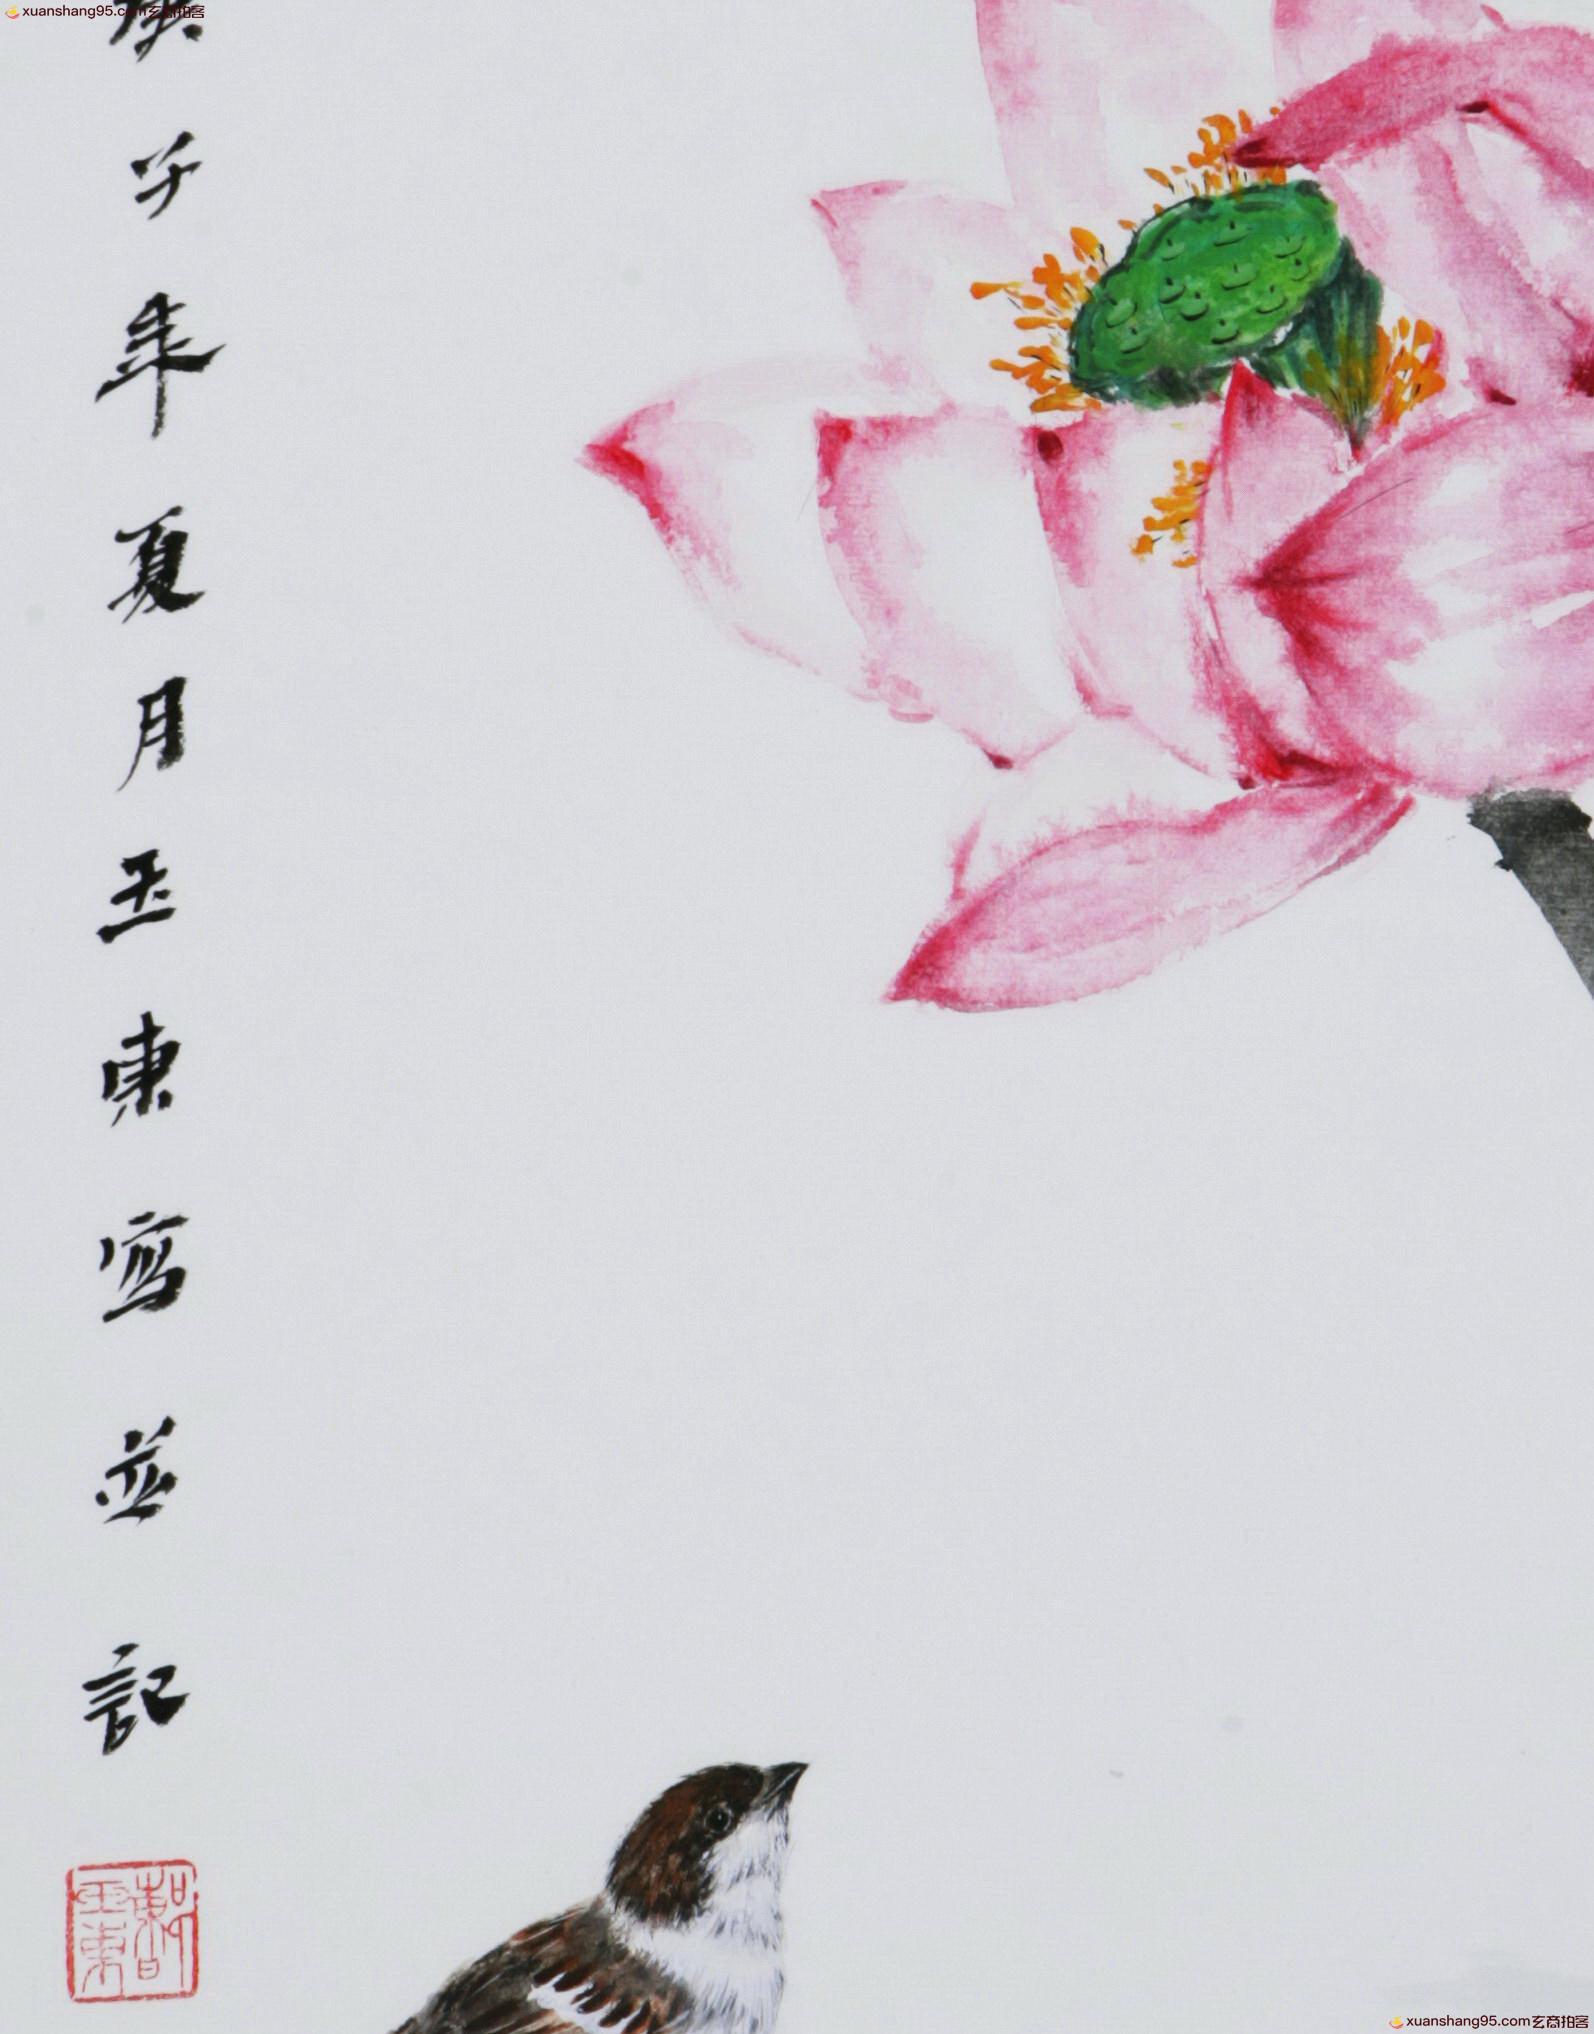 xuanshang95.com玄商拍客
庚子年夏月玉東寫並記
玉東
xuanshang95.com玄商拍客